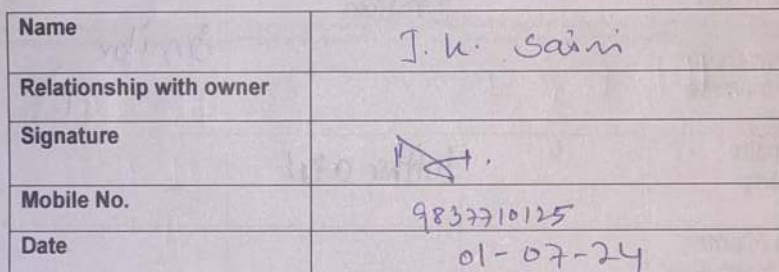 Name J.K. Saini
Relationship with owner
Signature
Mobile No. 9837710125
Date 01-07-24